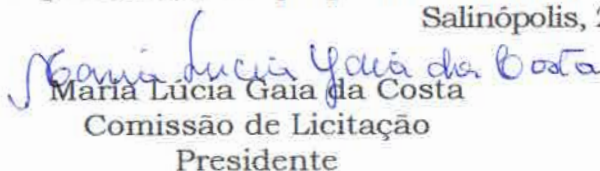 Salinópolis, 2
Maria Lucia Gaia da Costa
Maria Lúcia Gaia da Costa
Comissão de Licitação
Presidente